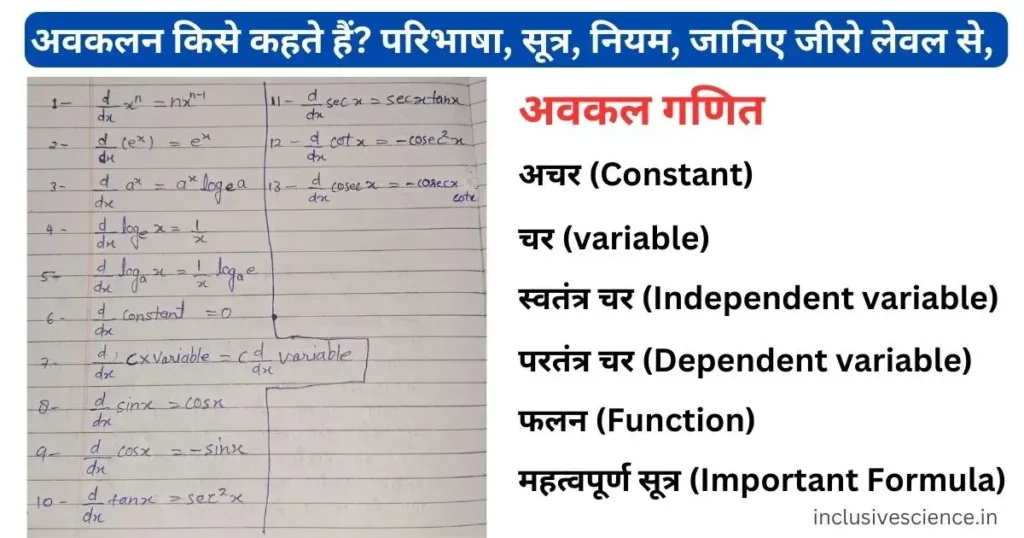 अवकलन किसे कहते हैं? परिभाषा, सूत्र, नियम, जानिए जीरो लेवल से,
1- d/dx xⁿ = nxⁿ⁻¹
2- d/dx (eˣ) = eˣ
3- d/dx aˣ = aˣ logₑa
4- d/dx logₑx = 1/x
5- d/dx logₐx = 1/x logₐe
6- d/dx constant = 0
7- d/dx c×variable = c d/dx variable
8- d/dx sinx = cosx
9- d/dx cosx = -sinx
10- d/dx tanx = sec²x
11- d/dx secx = secxtanx
12- d/dx cotx = -cosec²x
13- d/dx cosecx = -cosecx cotx
अवकल गणित
अचर (Constant)
चर (variable)
स्वतंत्र चर (Independent variable)
परतंत्र चर (Dependent variable)
फलन (Function)
महत्वपूर्ण सूत्र (Important Formula)
inclusivescience.in